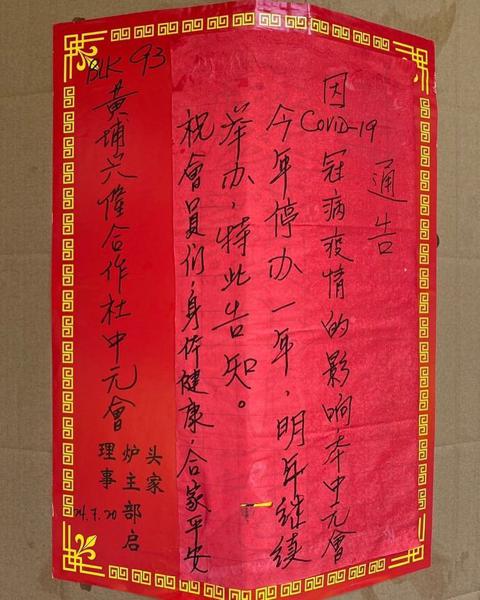 通告
因COVID-19冠病疫情的影响本中元會
今年停办一年，明年继续
举办，特此告知。
祝會員们，身体健康，合家平安
BLK 93
黃埔兴隆合作社中元會
头家
炉主部启
理事
24.7.20